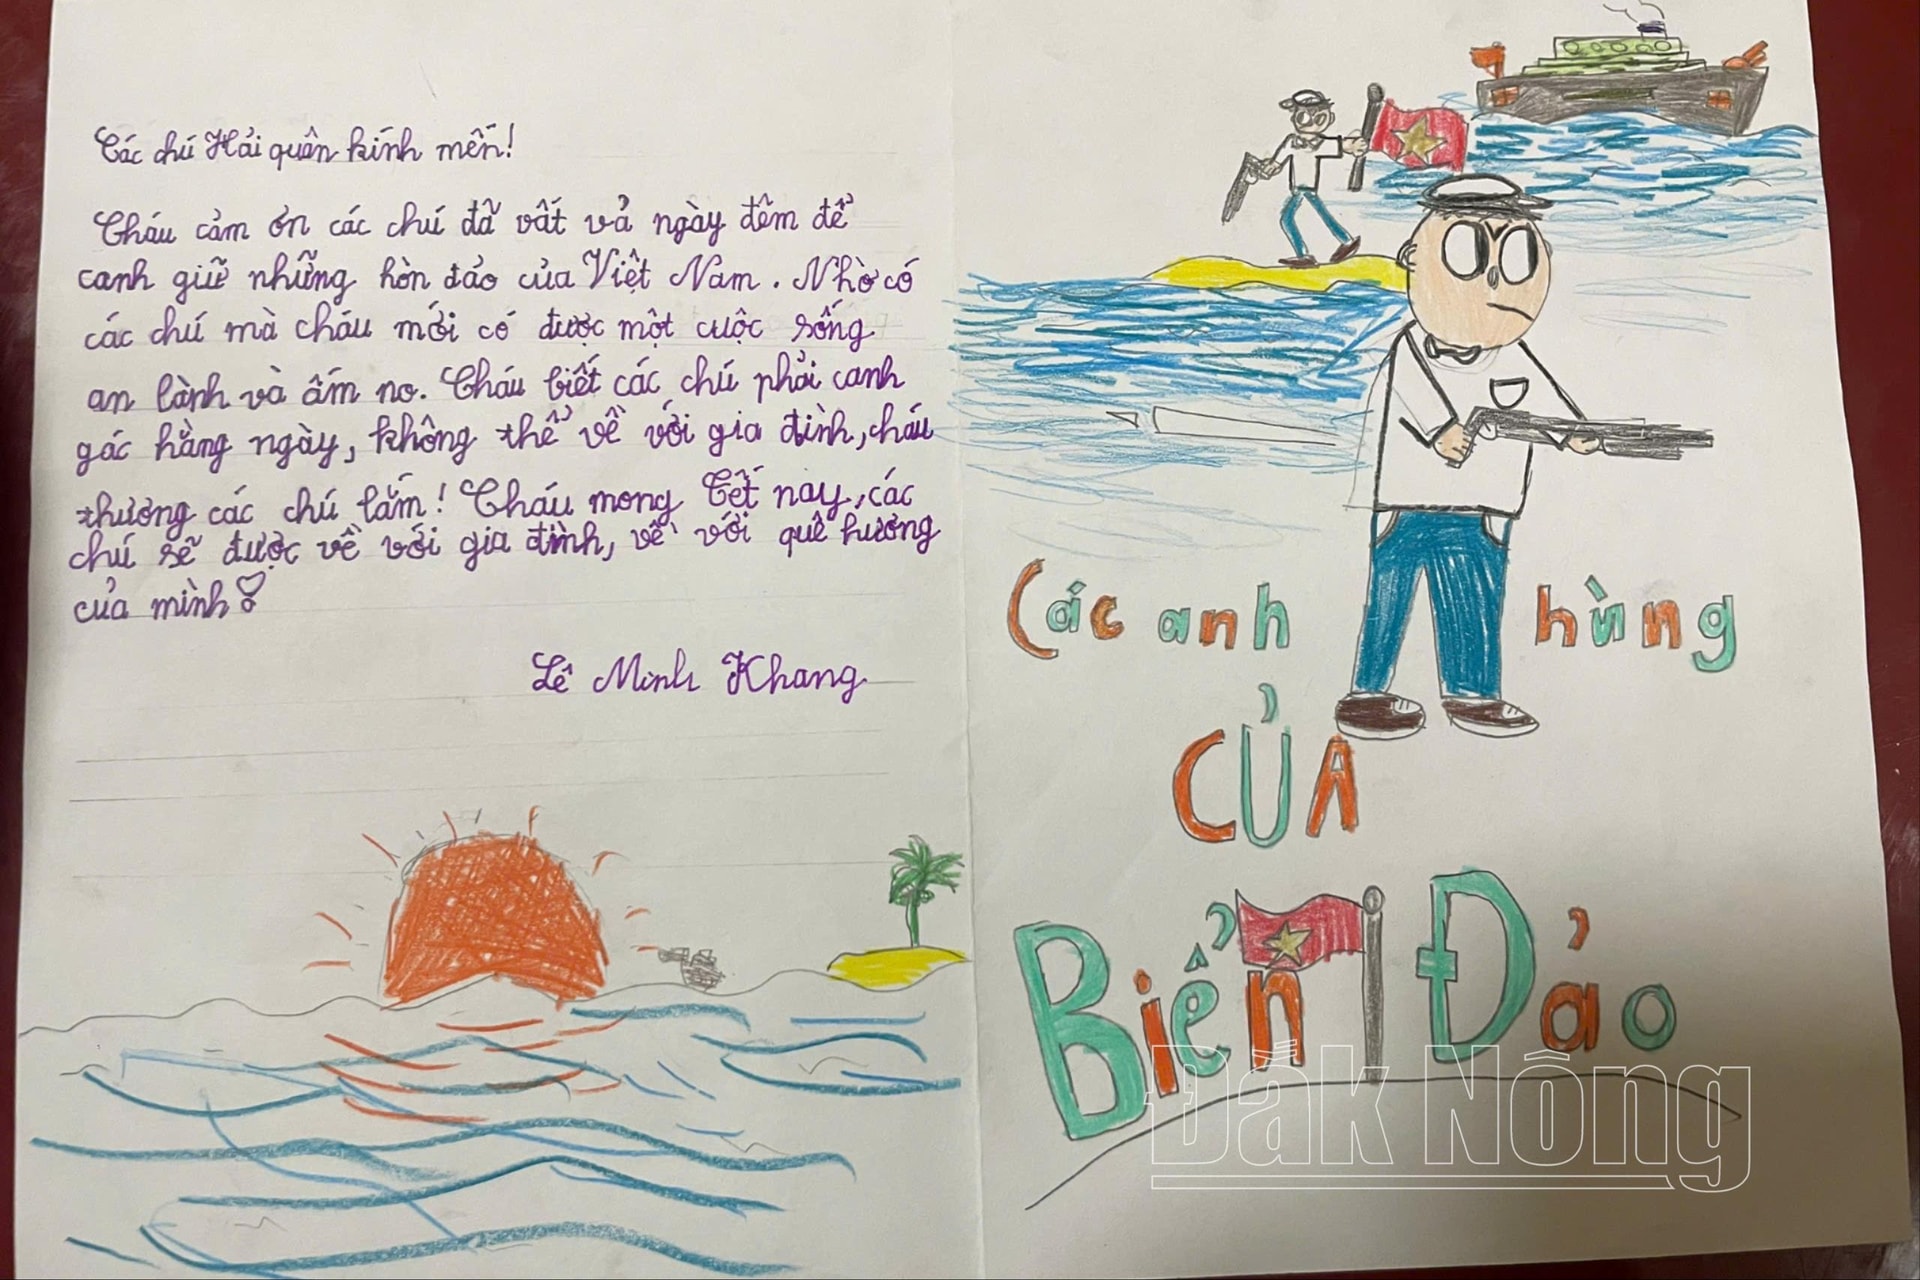 Các chú Hải quân kính mến!
Cháu cảm ơn các chú đã vất vả ngày đêm để
canh giữ những hòn đảo của Việt Nam. Nhờ có
các chú mà cháu mới có được một cuộc sống
an lành và ấm no. Cháu biết các chú phải canh
gác hằng ngày, không thể về với gia đình, cháu
thương các chú lắm! Cháu mong Tết nay, các
chú sẽ được về với gia đình, về với quê hương
của mình!
Lê Minh Khang
Các anh hùng
CỦA
Biển Đảo
Đắk Nông